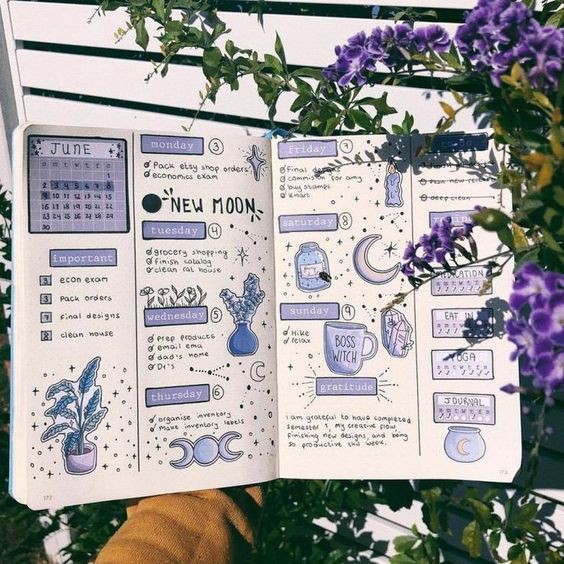 JUNE
s m t w t f s
1
2 3 4 5 6 7 8
9 10 11 12 13 14 15
16 17 18 19 20 21 22
23 24 25 26 27 28 29
30
important
3 econ exam
3 pack orders
7 final designs
8 clean house
172
monday 3
Pack etsy shop orders
economics exam
NEW MOON
tuesday 4
grocery shopping
finish catalog
clean rat house
wednesday 5
prep products
email ema
dad's home
Dr's
thursday 6
organise inventory
make inventory labels
friday 7
Final designs
commision for amy
buy stamps
kmart
saturday 8
sunday 9
Hike
relax
BOSS WITCH
gratitude
i am grateful to have completed
semester 1, my creative flow,
finishing new designs, and being
so productive this week.
deep clean
EAT IN
YOGA
s m t w t f s
JOURNAL
s m t w t f s
173